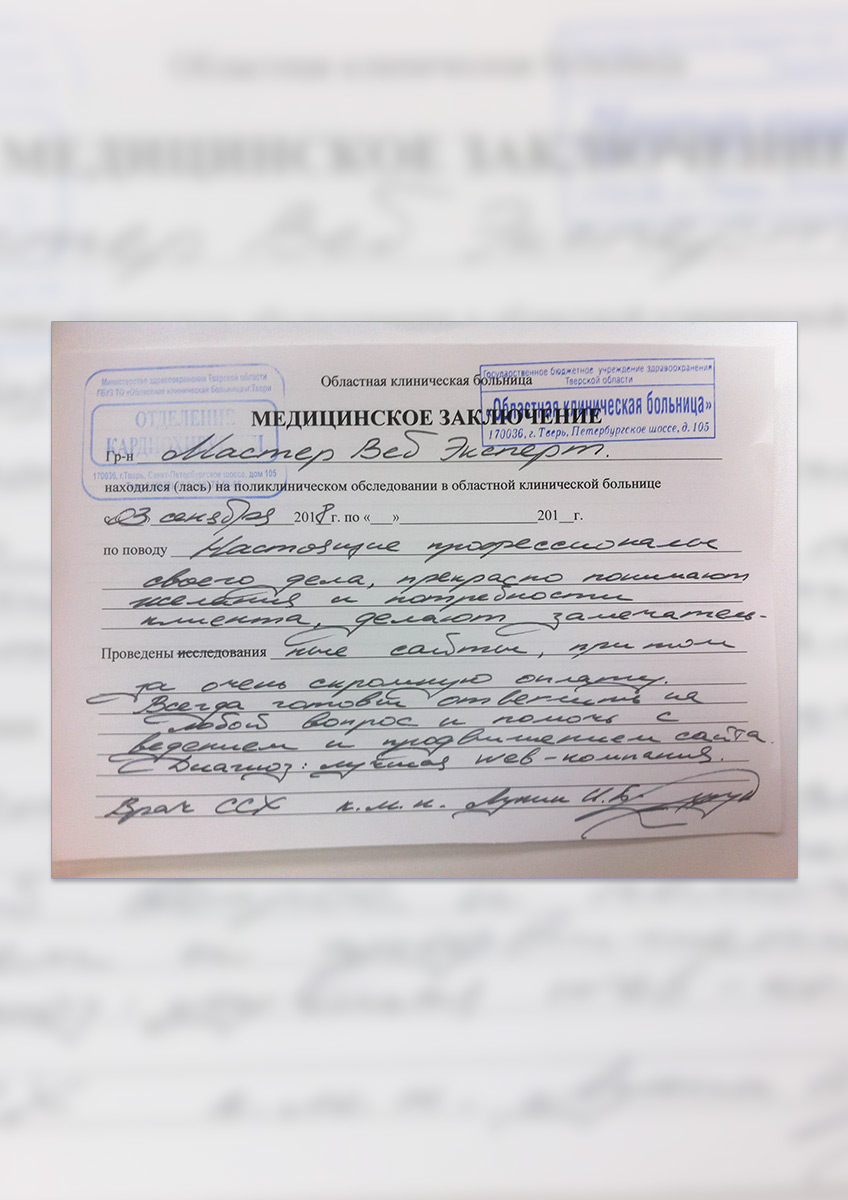 Областная клиническая больница
МЕДИЦИНСКОЕ ЗАКЛЮЧЕНИЕ
Министерство здравоохранения Тверской области
ГБУЗ ТО «Областная клиническая больница» г.Твери
ОТДЕЛЕНИЕ
КАРДИОХИРУРГИИ
170036, г.Тверь, Санкт-Петербургское шоссе, дом 105
Государственное бюджетное учреждение здравоохранения
Тверской области
«Областная клиническая больница»
170036, г. Тверь, Петербургское шоссе, д. 105
Гр-н Мастер Веб Эксперт.
находился (лась) на поликлиническом обследовании в областной клинической больнице
«03 сентября 2018 г. по «__»__________201__г.
по поводу Настоящие профессионалы
своего дела, прекрасно понимают
желания и потребности
клиента, делают замечатель-
Проведены исследования ные сайты, при том
за очень скромную оплату.
Всегда готовы ответить на
любой вопрос и помочь с
ведением и продвижением сайта.
Диагноз: лучшая web-компания.
Врач ССХ к.м.н. Лунин И.Б.